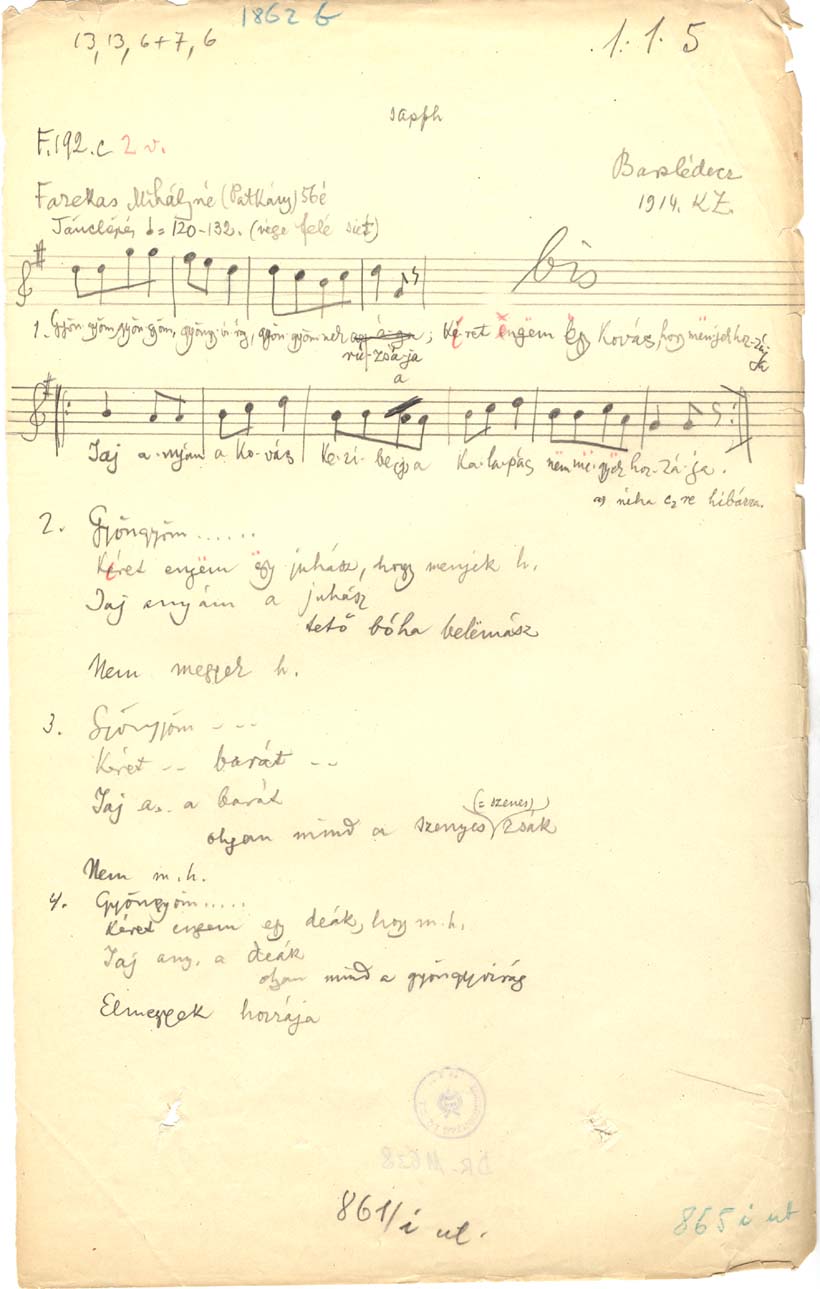 1862 b
13, 13, 6+7, 6
1. 1. 5
sapph
F.192.c 2 v.
Barslédecz
1914. KZ.
Farekas Mihályné (Patkány) 56é
Tánclépés = 120-132. (vége felé siet)
bis
1. Gyön-gyöm, gyön-gyöm, gyöngy-vi-rág, gyön-gyöm-nek ; Kéret engëm ëgy Kovács, hogy mënjek hoz-zá-
ru-zsá-ja
ja
a
Jaj a-nyám a Ko-vács Ke-zi-be Ka-la-pács nëm më-gyek hoz-zá-ja.
a) néha c₂ re hibázza.
2. Gyöngyöm ......
Kéret engëm ëgy juhász, hogy menjek h.
Jaj anyám a juhász
tető bóha belëmász
Nem megyek h.
3. Gyöngyöm - - -
Kéret -- barát --
Jaj a.. a barát
(= szenes)
olyan mind a szenyes zsák
Nem m. h.
4. Gyöngyöm .....
Kéret engem egy deák, hogy m. h.
Jaj any. a deák
olyan mind a gyöngyvirág
Elmegyek hozzája
861/i ut.
865 i ut